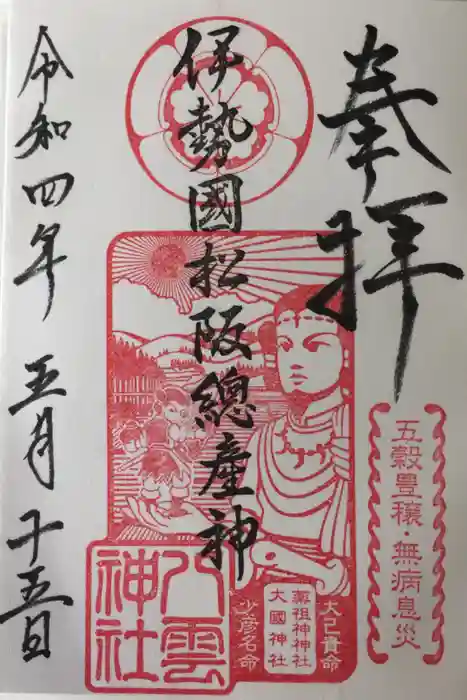 奉拝
五穀豊穣・無病息災
伊勢國松阪總産神
大己貴命
薬祖神神社
大國神社
少彦名命
八雲
神社
令和四年 五月 十五日